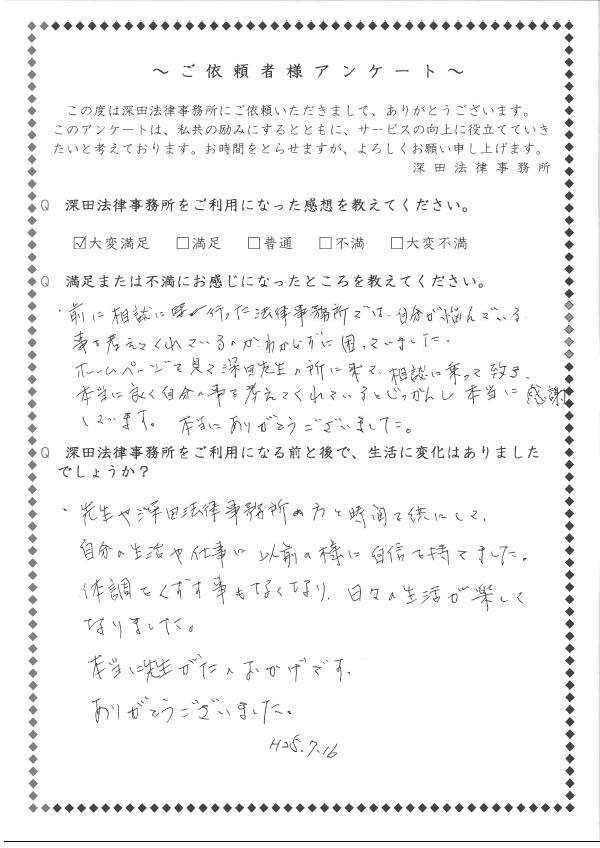 ～ご依頼者様アンケート～
この度は深田法律事務所にご依頼いただきまして、ありがとうございます。
このアンケートは、私共の励みにするとともに、サービスの向上に役立てていき
たいと考えております。お時間をとらせますが、よろしくお願い申し上げます。
深田法律事務所
Q 深田法律事務所をご利用になった感想を教えてください。
☑大変満足 □満足 □普通 □不満 □大変不満
Q 満足または不満にお感じになったところを教えてください。
・前に相談に行った法律事務所では、自分が悩んでいる
事を考えてくれているのかわからずに困っていました。
ホームページで見て深田先生の所に来て、相談に乗って致き、
本当に良く自分の事を考えてくれているとじっかんし本当に感謝
しています。本当にありがとうございました。
Q 深田法律事務所をご利用になる前と後で、生活に変化はありました
でしょうか？
・先生や深田法律事務所の方と時間を供にして、
自分の生活や仕事に以前の様に自信を持てました。
体調をくずす事もなくなり、日々の生活が楽しく
なりました。
本当に先生がたのおかげです。
ありがとうございました。
H25.7.16